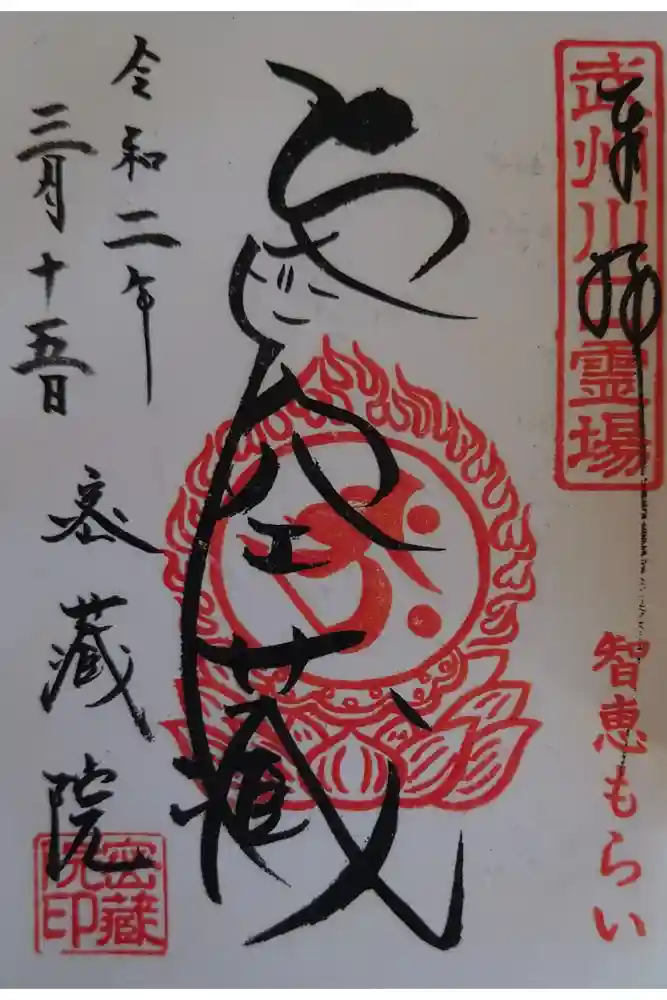 奉拝
武州川口霊場
智恵もらい
虚空蔵
令和二年
三月十五日
密蔵院
密藏院印